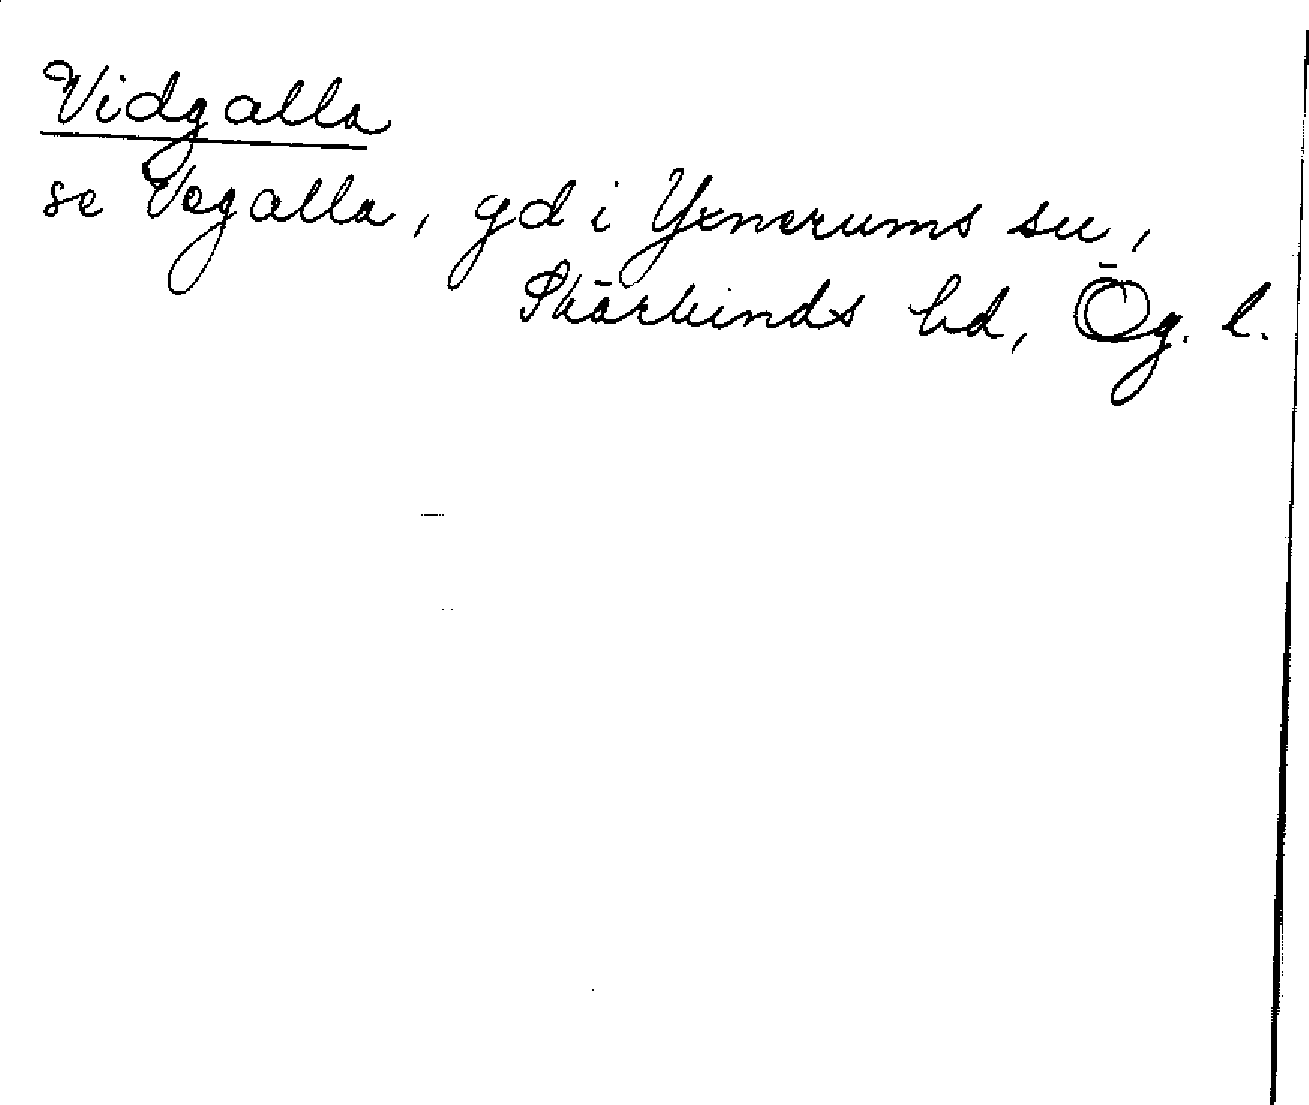 Vidgalla
se Vegalla, gd i Yxnerums sn,
Skärkinds hd, Ög. l.